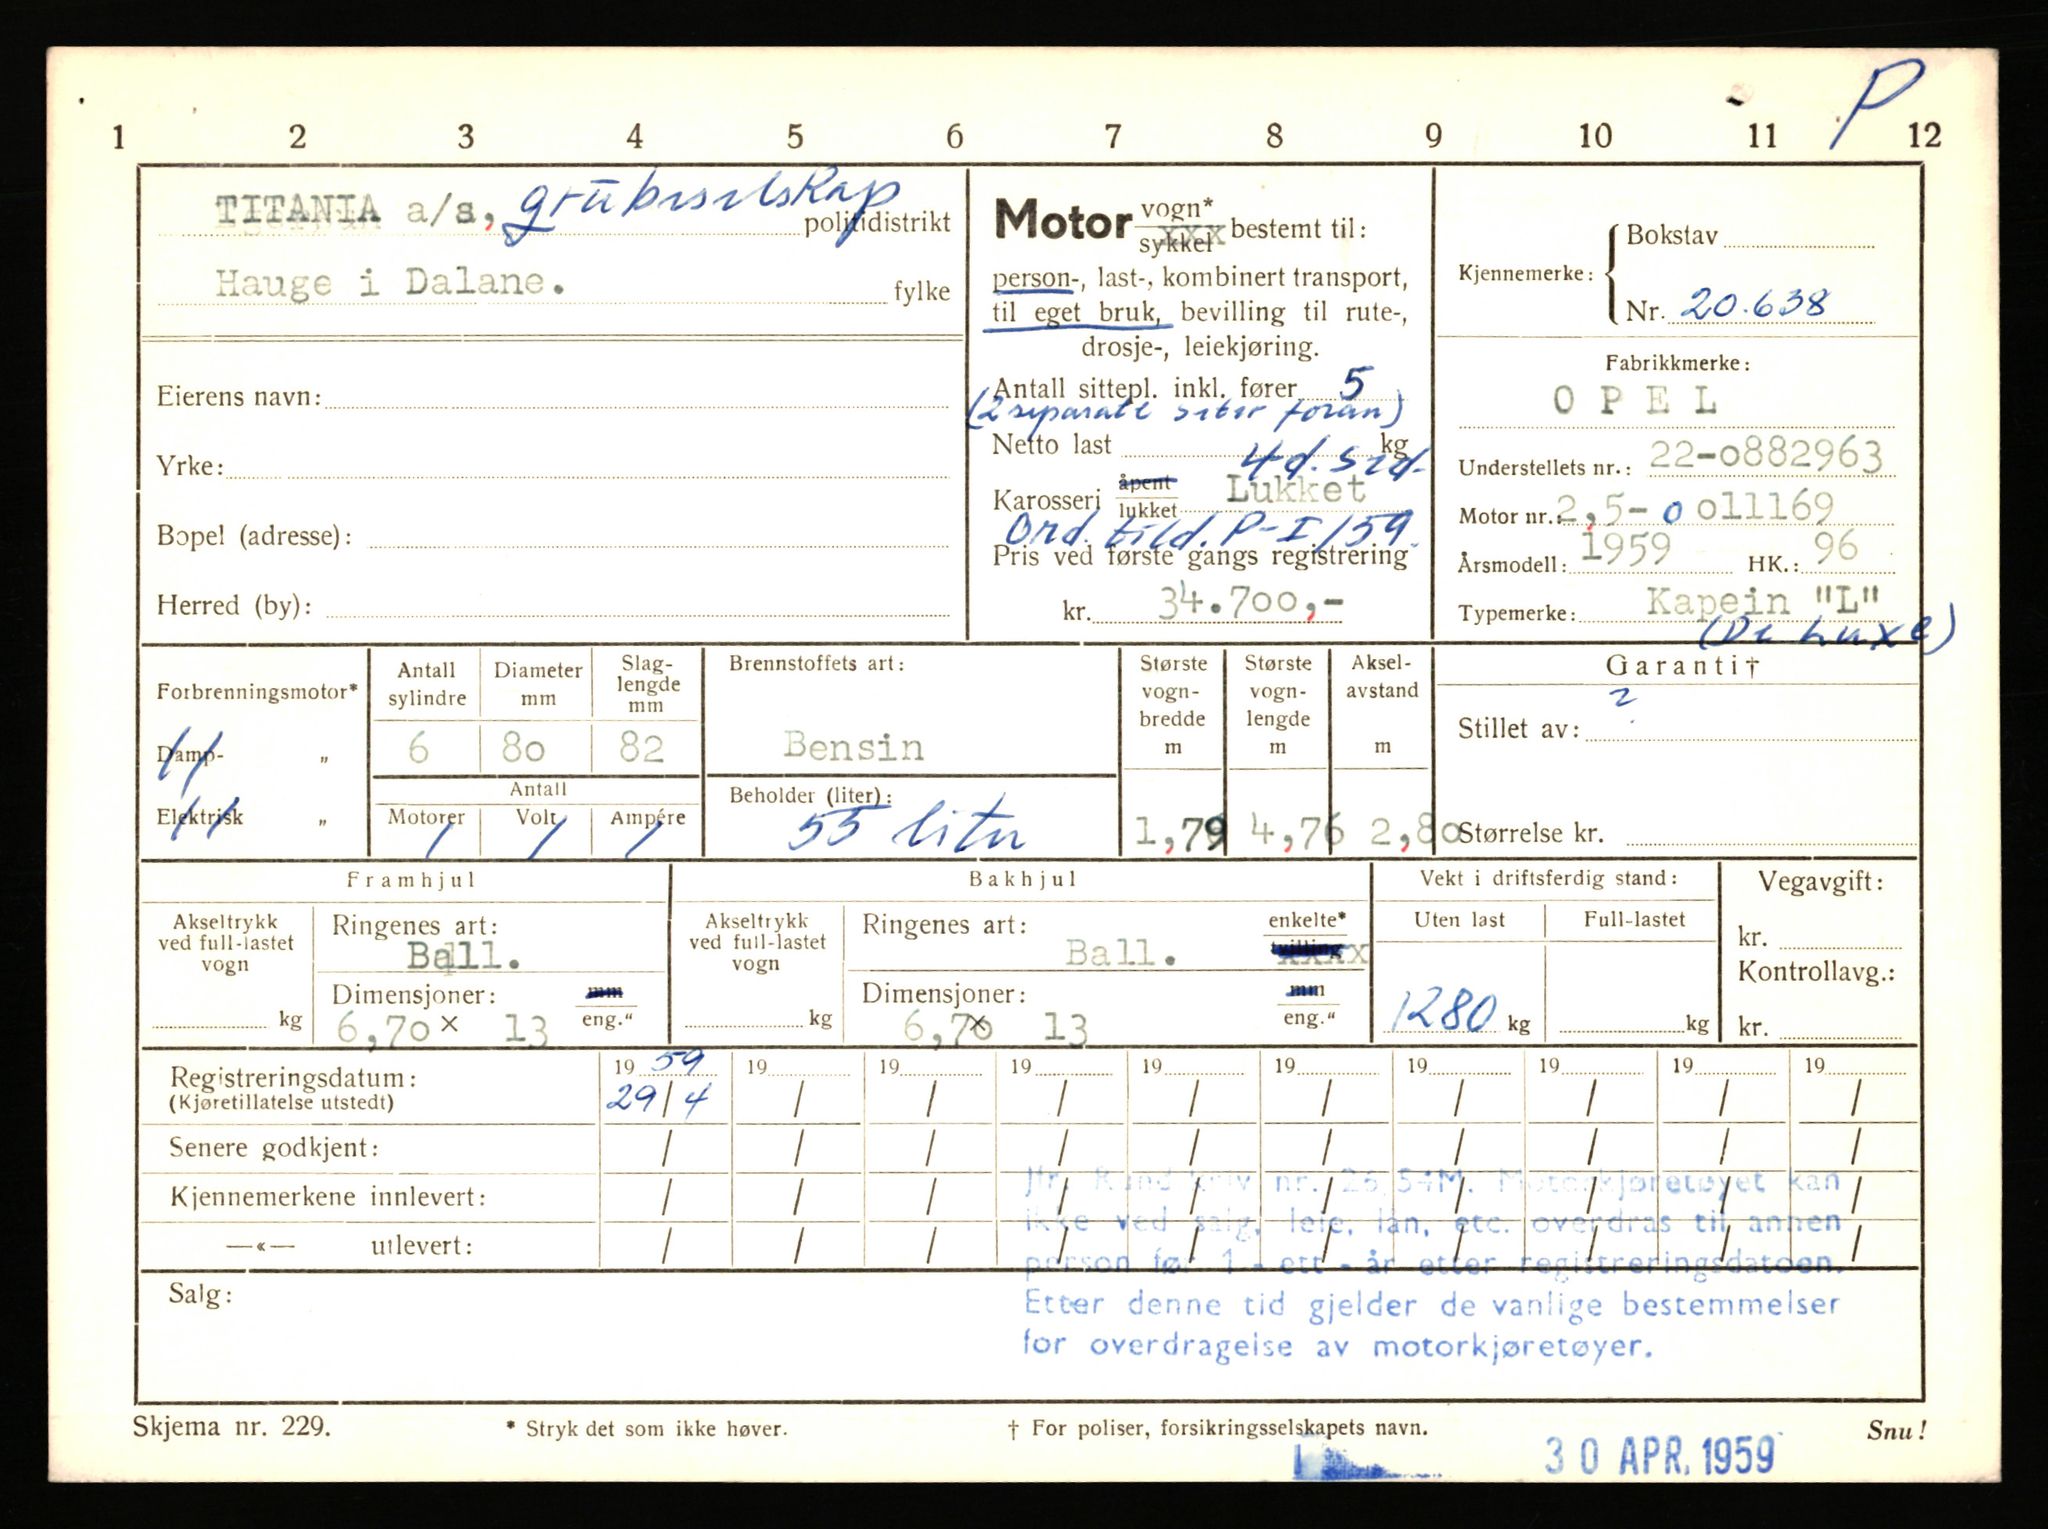 P
1 2 3 4 5 6 7 8 9 10 11 12
TITANIA a/s, grubeselskap politidistrikt
Hauge i Dalane. fylke
Eierens navn:
Yrke:
Bopel (adresse):
Herred (by):
Motor vogn* sykkel xxx bestemt til:
person-, last-, kombinert transport,
til eget bruk, bevilling til rute-,
drosje-, leiekjøring.
Antall sittepl. inkl. fører 5
(2 separate seter foran)
Netto last kg
4d. sed.
Karosseri åpent lukket Lukket
Ord. tild. P-I/59.
Pris ved første gangs registrering
kr. 34.700,-
Kjennemerke: Bokstav
Nr. 20.638
Fabrikkmerke:
OPEL
Understellets nr.: 22-0882963
Motor nr.: 2,5-0 011169
Årsmodell: 1959 HK.: 96
Typemerke: Kapein "L"
(De Luxe)
Forbrenningsmotor*
Damp- „
Elektrisk „
Antall sylindre
6
Diameter mm
80
Slag-lengde mm
82
Antall
Motorer Volt Ampére
Brennstoffets art:
Bensin
Beholder (liter):
55 liter
Største vogn-bredde m
1,79
Største vogn-lengde m
4,76
Aksel-avstand m
2,80
Garanti†
Stillet av: ?
Størrelse kr.
Framhjul
Akseltrykk ved full-lastet vogn
kg
Ringenes art:
Ball.
Dimensjoner: mm eng.“
6,70 x 13
Bakhjul
Akseltrykk ved full-lastet vogn
kg
Ringenes art: enkelte* tvilling xxxx
Ball.
Dimensjoner: mm eng.“
6,70 x 13
Vekt i driftsferdig stand:
Uten last Full-lastet
1280 kg kg
Vegavgift:
kr.
Kontrollavg.:
kr.
19 59 19 19 19 19 19 19 19 19 19
Registreringsdatum:
(Kjøretillatelse utstedt) 29/4 / / / / / / / / /
Senere godkjent: / / / / / / / / / /
Kjennemerkene innlevert: / / / / / / / / / /
—«— utlevert: / / / / / / / / / /
Salg:
Jfr. Rundskriv nr. 26/54M. Motorkjøretøyet kan
ikke ved salg, leie, lån, etc. overdras til annen
person før 1 - ett - år etter registreringsdatoen.
Etter denne tid gjelder de vanlige bestemmelser
for overdragelse av motorkjøretøyer.
Skjema nr. 229. * Stryk det som ikke høver. † For poliser, forsikringsselskapets navn. Snu!
30 APR. 1959